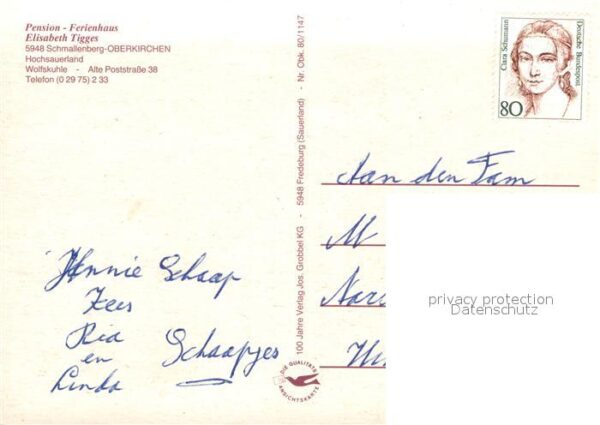 Pension - Ferienhaus
Elisabeth Tigges
5948 Schmallenberg-OBERKIRCHEN
Hochsauerland
Wolfskuhle - Alte Poststraße 38
Telefon (0 29 75) 2 33
Hennie Schaap
Kees
Ria
en Schaapjes
Linda
100 Jahre Verlag Jos. Grobbel KG - 5948 Fredeburg (Sauerland) - Nr. Obk. 80/1147
DIE QUALITÄTS
ANSICHTSKARTE
Clara Schumann
Deutsche Bundespost
80
Aan den Fam
M
privacy protection
Datenschutz